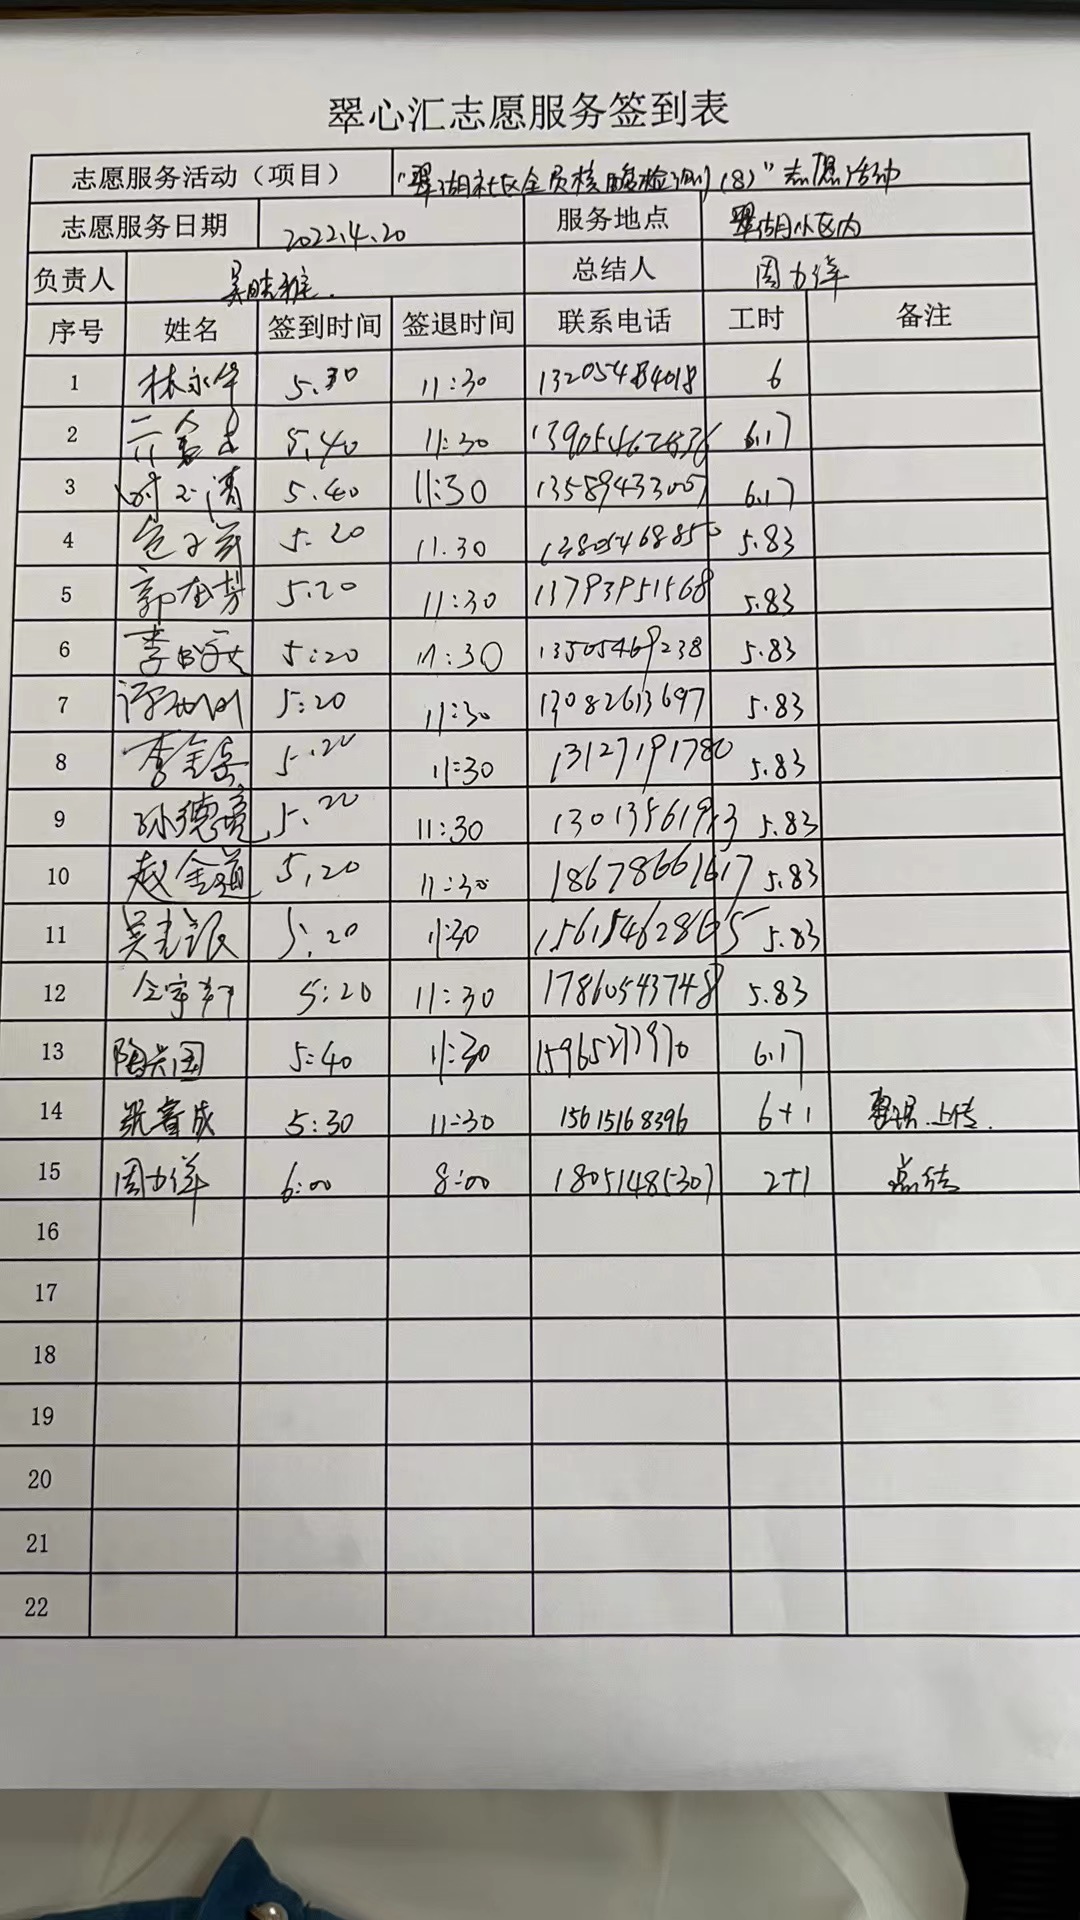 翠心汇志愿服务签到表
志愿服务活动（项目） "翠湖社区全员核酸检测(8)"志愿活动
志愿服务日期 2022.4.20 服务地点 翠湖小区内
负责人 总结人 周力洋
序号 姓名 签到时间 签退时间 联系电话 工时 备注
1 林永华 5.30 11:30 6
2 5.40 11:30 6.17
3 5.40 11:30 6.17
4 5.20 11.30 5.83
5 5.20 11:30 13793951568 5.83
6 5:20 11:30 13505469238 5.83
7 5:20 11:30 13082613697 5.83
8 5.20 11:30 13127191780 5.83
9 孙德亮 5.20 11:30 5.83
10 赵金道 5.20 11:30 18678661617 5.83
11 5.20 11:30 15615462865 5.83
12 5:20 11:30 17860543748 5.83
13 陶兴国 5:40 11:30 15965277970 6.17
14 5:30 11:30 15615168396 6+1 上传.
15 周力洋 6:00 8:00 18051485307 2+1 总结
16
17
18
19
20
21
22